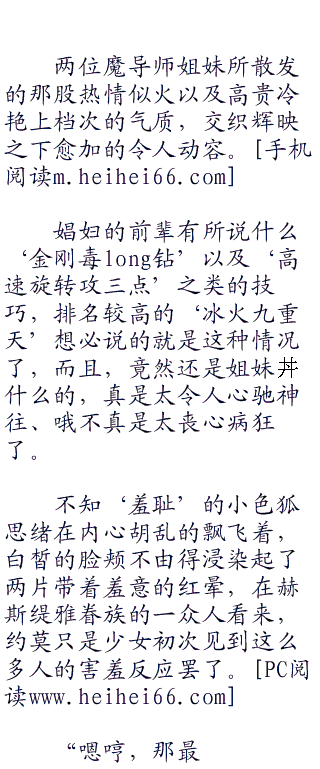 两位魔导师姐妹所散发
的那股热情似火以及高贵冷
艳上档次的气质，交织辉映
之下愈加的令人动容。[手机
阅读m.heihei66.com]
娼妇的前辈有所说什么
‘金刚毒long钻’以及‘高
速旋转攻三点’之类的技
巧，排名较高的‘冰火九重
天’想必说的就是这种情况
了，而且，竟然还是姐妹丼
什么的，真是太令人心驰神
往、哦不真是太丧心病狂
了。
不知‘羞耻’的小色狐
思绪在内心胡乱的飘飞着，
白皙的脸颊不由得浸染起了
两片带着羞意的红晕，在赫
斯缇雅眷族的一众人看来，
约莫只是少女初次见到这么
多人的害羞反应罢了。[PC阅
读www.heihei66.com]
“嗯哼，那最